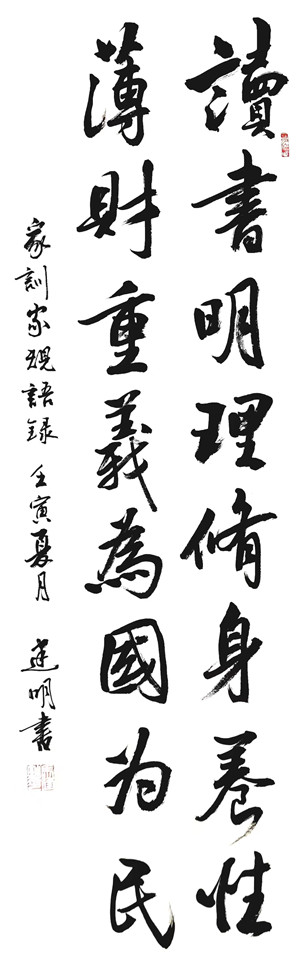 讀書明理脩身養性
薄財重義為國为民
家訓家规語録 壬寅夏月 建明書